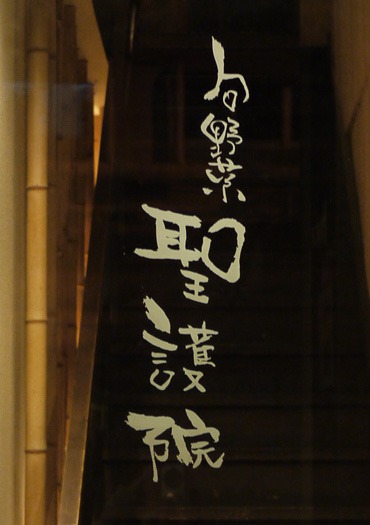 旬野菜
聖護院